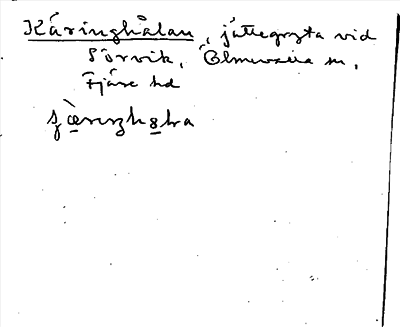 Käringhålan, jättegryta vid
Sörvik, Ölmevalla sn,
Fjäre hd